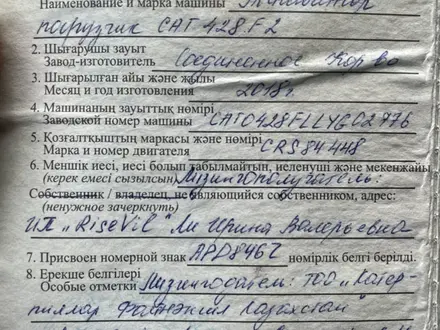 Наименование и марка машины Экскаватор
погрузчик CAT 428F2
2. Шығарушы зауыт
Завод-изготовитель Соединенное Кор-во
3. Шығарылған айы және жылы
Месяц и год изготовления 2018г.
4. Машинаның зауыттық нөмірі
Заводской номер машины CAT0428FLLYG02776
5. Қозғалтқыштың маркасы және нөмірі
Марка и номер двигателя CRS84448
6. Меншік иесі, иесі болып табылмайтын, иеленуші және мекенжайы
(керек емесі сызылсын) Лизингополучатель:
Собственник / владелец, не являющийся собственником, адрес:
(ненужное зачеркнуть)
ИП "RiseVil" Ли Ирина Валерьевна
7. Присвоен номерной знак APD846Z нөмірлік белгі берілді.
8. Ерекше белгілері
Особые отметки Лизингодатель: ТОО "Катер-
пиллар Файнэншл Казахстан"